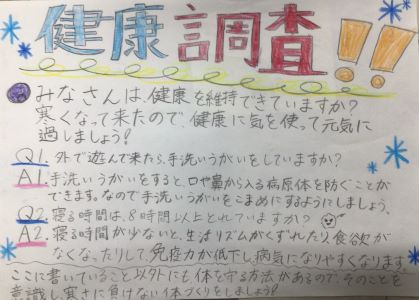 健康調査!!
みなさんは、健康を維持できていますか?
寒くなって来たので、健康に気を使って元気に
過しましょう!
Q1. 外で遊んで来たら、手洗いうがいをしていますか?
A1. 手洗いうがいをすると、口や鼻から入る病原体を防ぐことが
できます。なので手洗いうがいをこまめにするようにしましょう、
Q2. 寝る時間は、8時間以上とれていますか?
A2. 寝る時間が少ないと、生活リズムがくずれたり、食欲が
なくなったりして、免疫力が低下し、病気になりやすくなります。
ここに書いていること以外にも体を守る方法があるので、そのことを
意識し、寒さに負けない体づくりをしましょう!